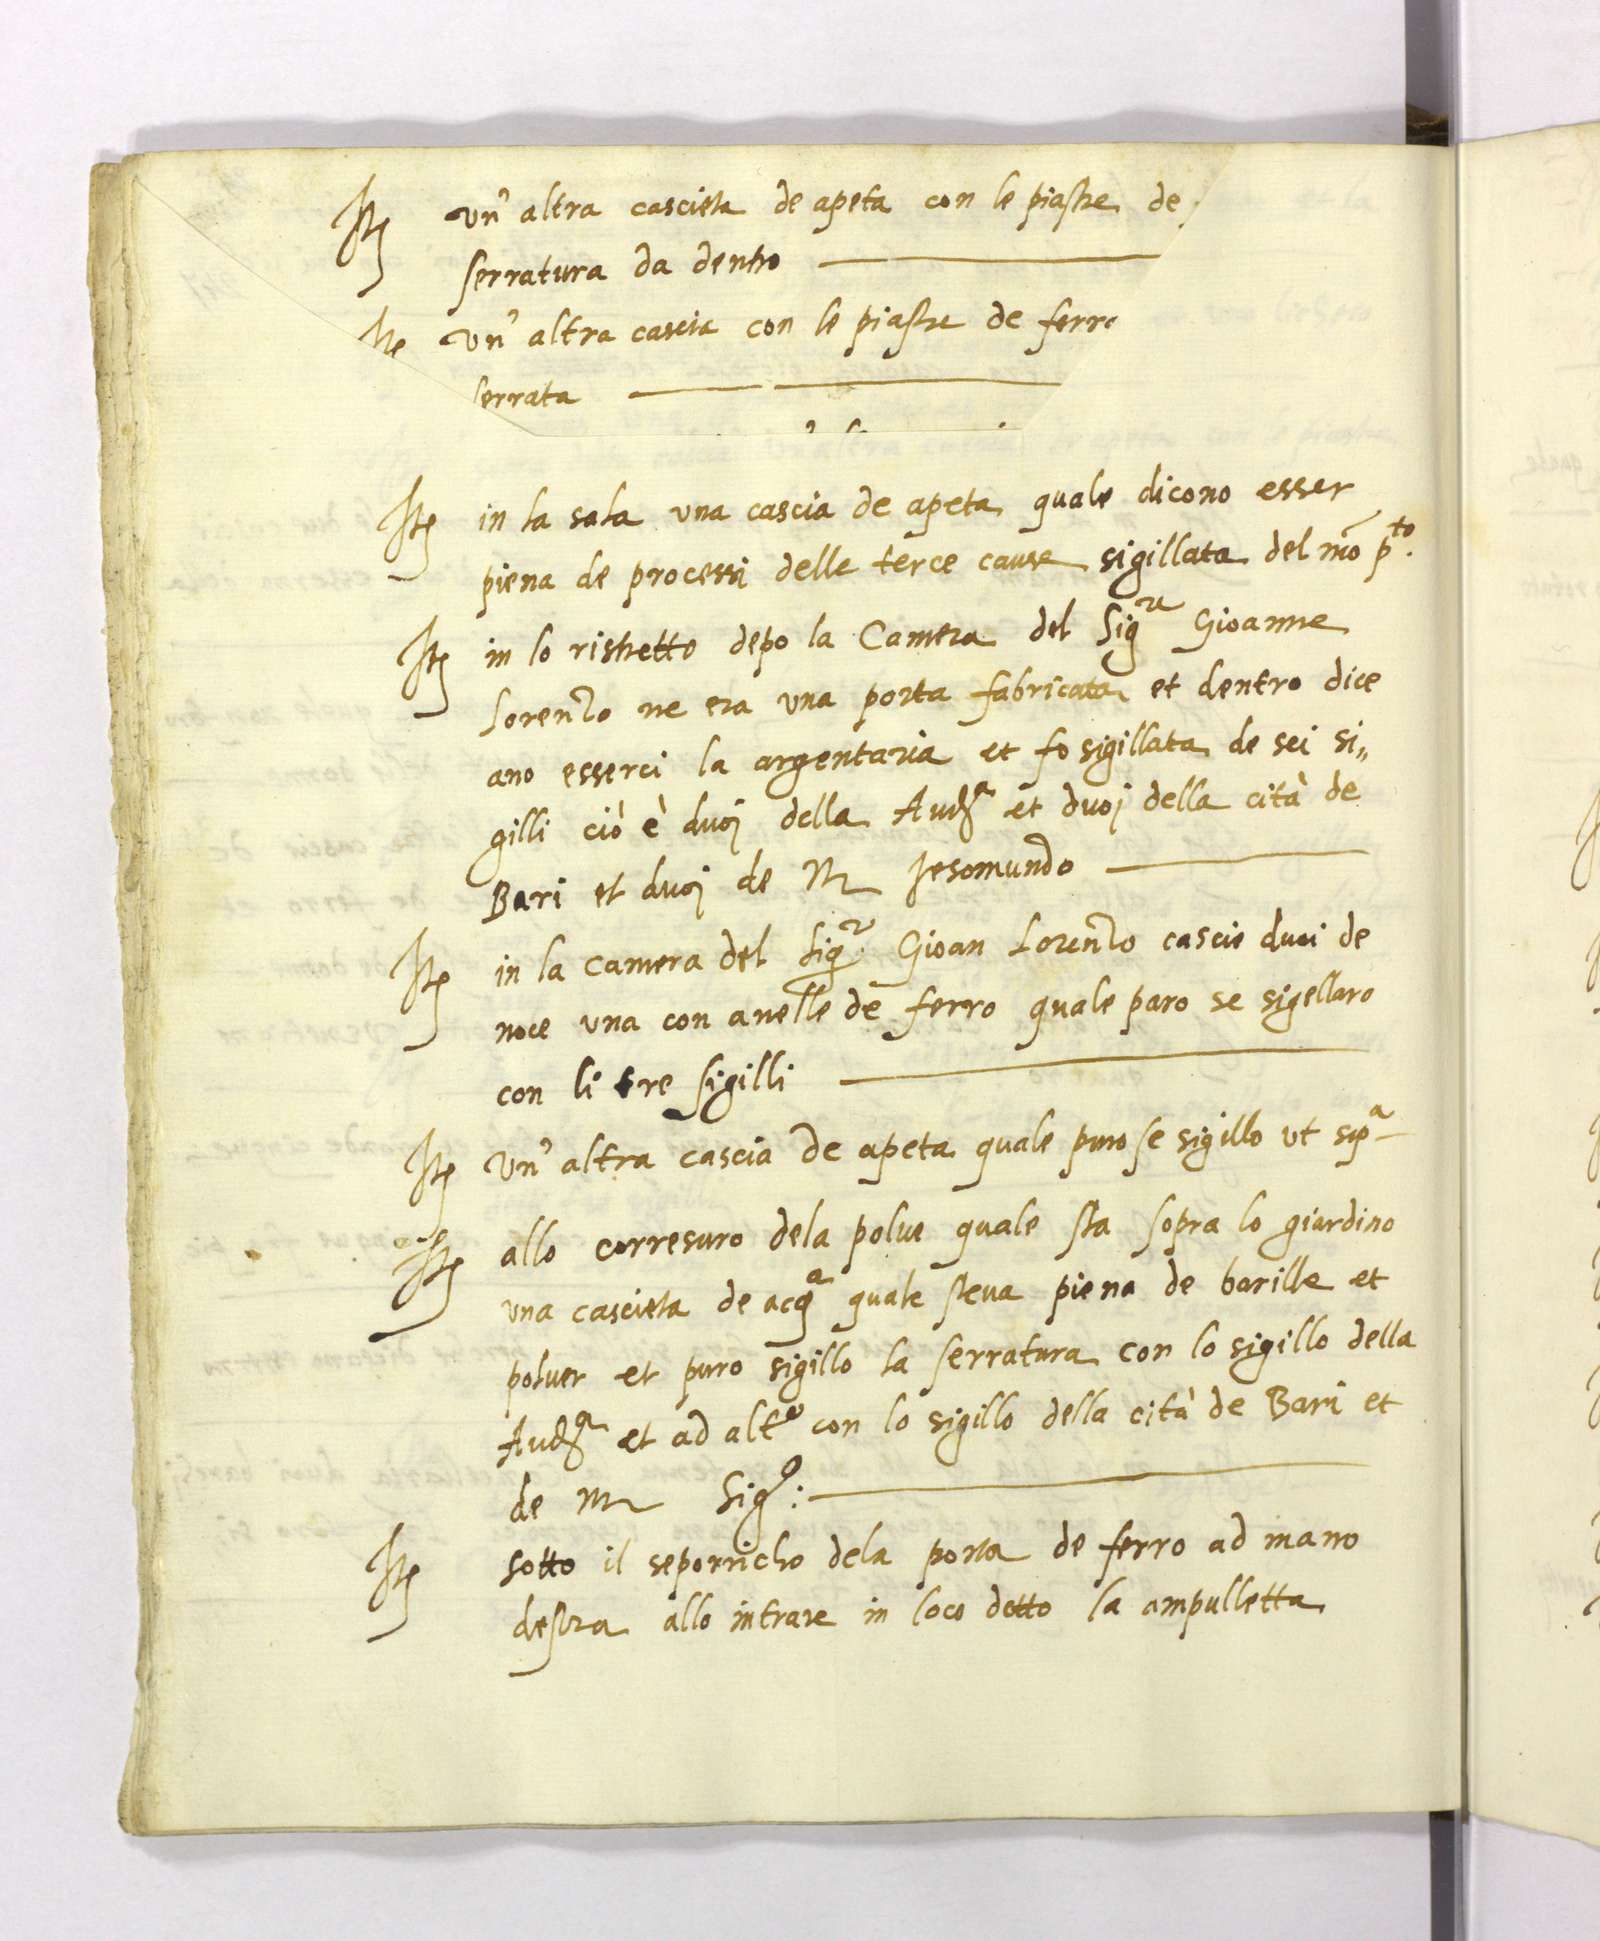 Ite un' altra cascieta de apeta con le piastre de
serratura da dentro
Ite un' altra cascia con le piastre de ferro
serrata
Ite in la sala una cascia de apeta quale dicono esser
piena de processi delle terce cause sigillata del mō p.to
Ite in lo ristretto depo la Camera del Sig.re Gioanne
Lorenzo ne era una porta fabricata et dentro dice
ano esserci la argentaria et fo sigillata de sei si,,
gilli ciò è duoj della Aud.a et duoj della cità de
Bari et duoj de M Jesomundo
Ite in la camera del Sig.r Gioan Lorenzo cascie duoi de
noce una con anelle de ferro quale paro se sigellaro
con li tre sigilli
Ite un' altra cascia de apeta quale puro se sigillo ut sup.a
Ite allo corresuro dela polue quale sta sopra lo giardino
una cascieta de acq.a quale steua piena de barille et
poluer et puro sigillo la serratura con lo sigillo della
Aud.a et ad alt.o con lo sigillo della cità de Bari et
de M Sig.o:
Ite sotto il seporticho dela porta de ferro ad mano
destra allo intrare in loco detto la ampulletta